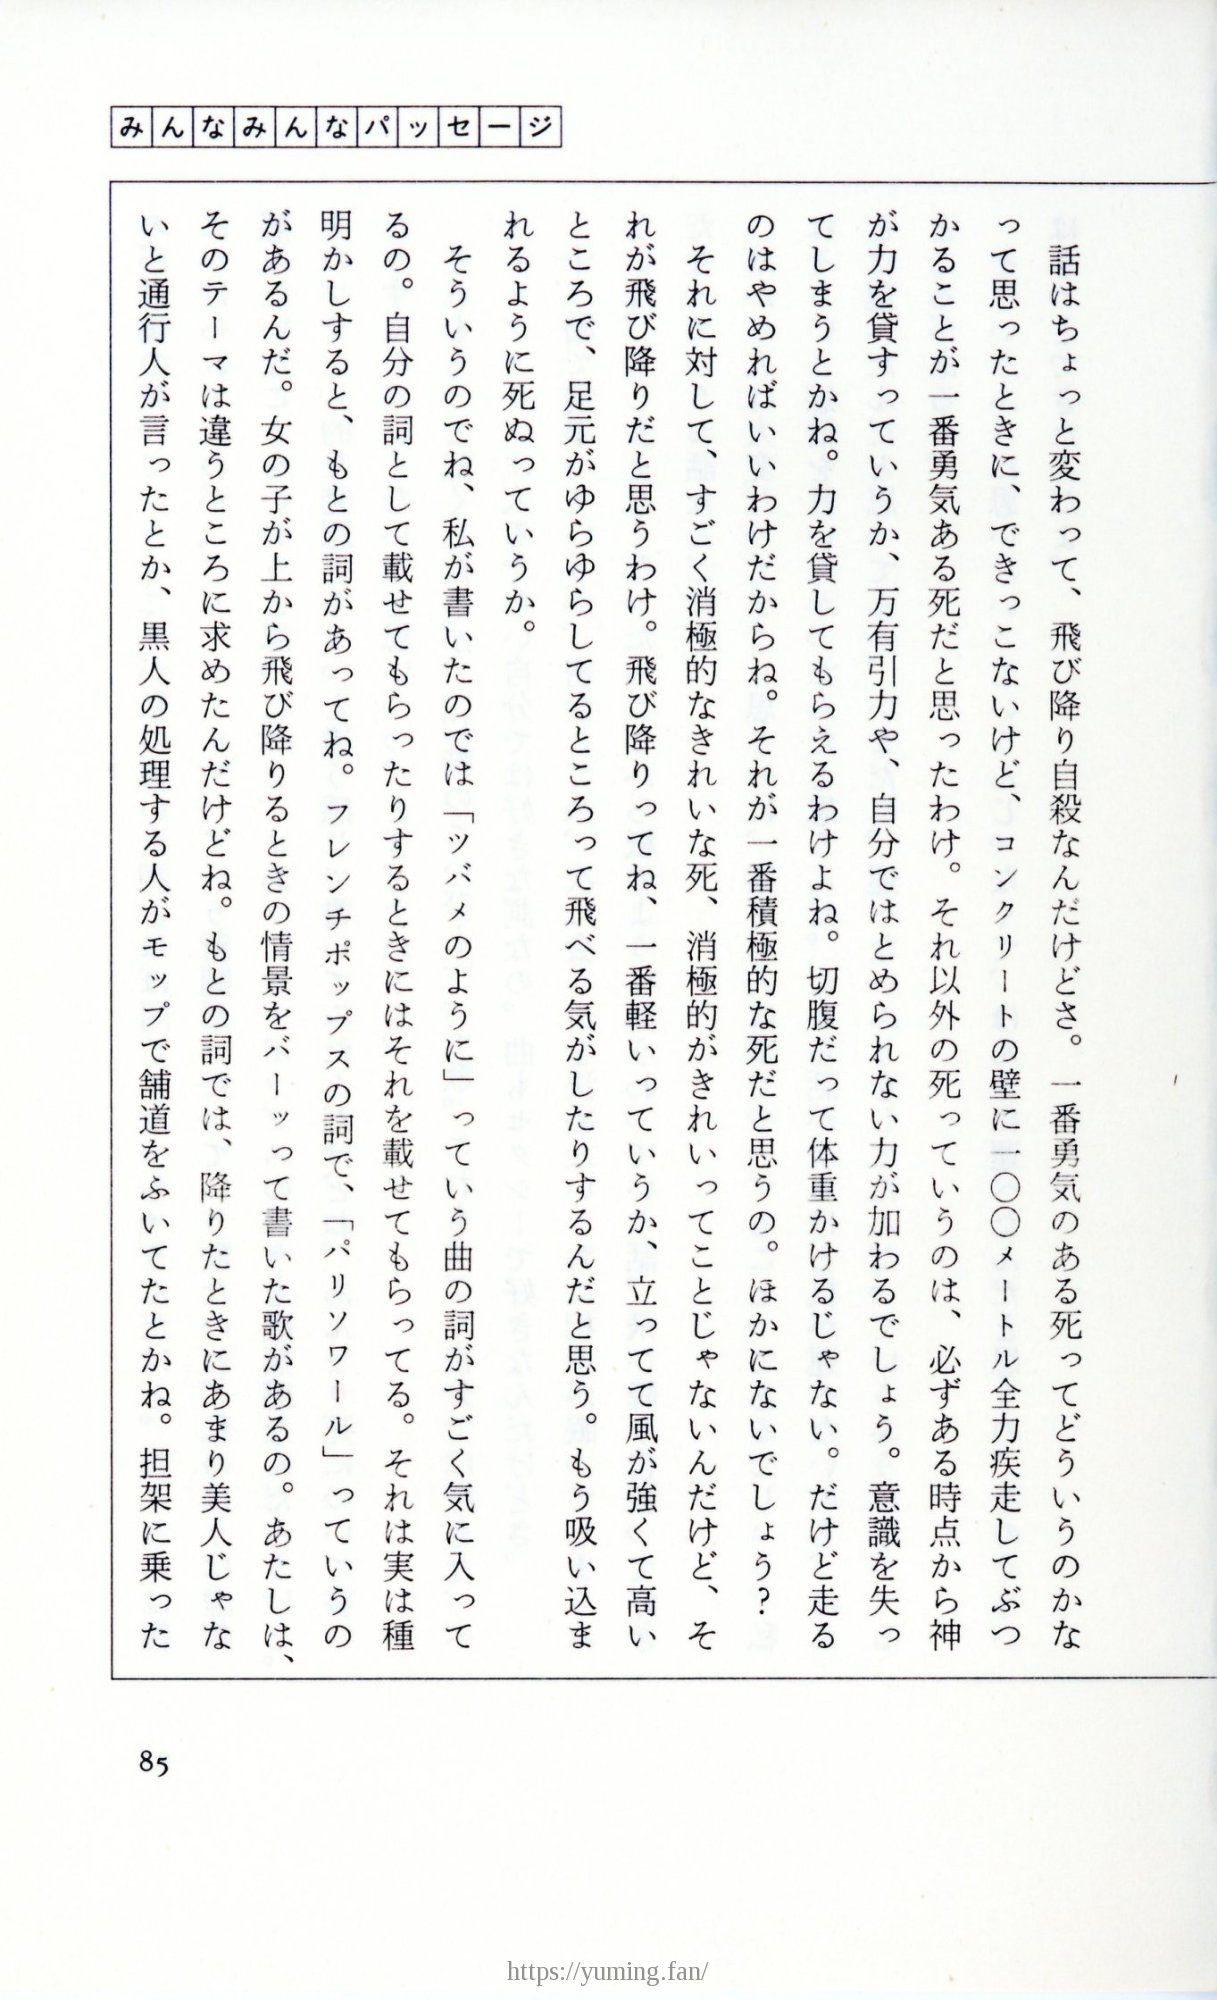 みんなみんなパッセージ
話はちょっと変わって、飛び降り自殺なんだけどさ。一番勇気のある死ってどういうのかな
って思ったときに、できっこないけど、コンクリートの壁に一〇〇メートル全力疾走してぶつ
かることが一番勇気ある死だと思ったわけ。それ以外の死っていうのは、必ずある時点から神
が力を貸すっていうか、万有引力や、自分ではとめられない力が加わるでしょう。意識を失っ
てしまうとかね。力を貸してもらえるわけよね。切腹だって体重かけるじゃない。だけど走る
のはやめればいいわけだからね。それが一番積極的な死だと思うの。ほかにないでしょう?
それに対して、すごく消極的なきれいな死、消極的がきれいってことじゃないんだけど、そ
れが飛び降りだと思うわけ。飛び降りってね、一番軽いっていうか、立ってて風が強くて高い
ところで、足元がゆらゆらしてるところって飛べる気がしたりするんだと思う。もう吸い込ま
れるように死ぬっていうか。
そういうのでね、私が書いたのでは「ツバメのように」っていう曲の詞がすごく気に入って
るの。自分の詞として載せてもらったりするときにはそれを載せてもらってる。それは実は種
明かしすると、もとの詞があってね。フレンチポップスの詞で、「パリソワール」っていうの
があるんだ。女の子が上から飛び降りるときの情景をバーッって書いた歌があるの。あたしは、
そのテーマは違うところに求めたんだけどね。もとの詞では、降りたときにあまり美人じゃな
いと通行人が言ったとか、黒人の処理する人がモップで舗道をふいてたとかね。担架に乗った
85
https://yuming.fan/